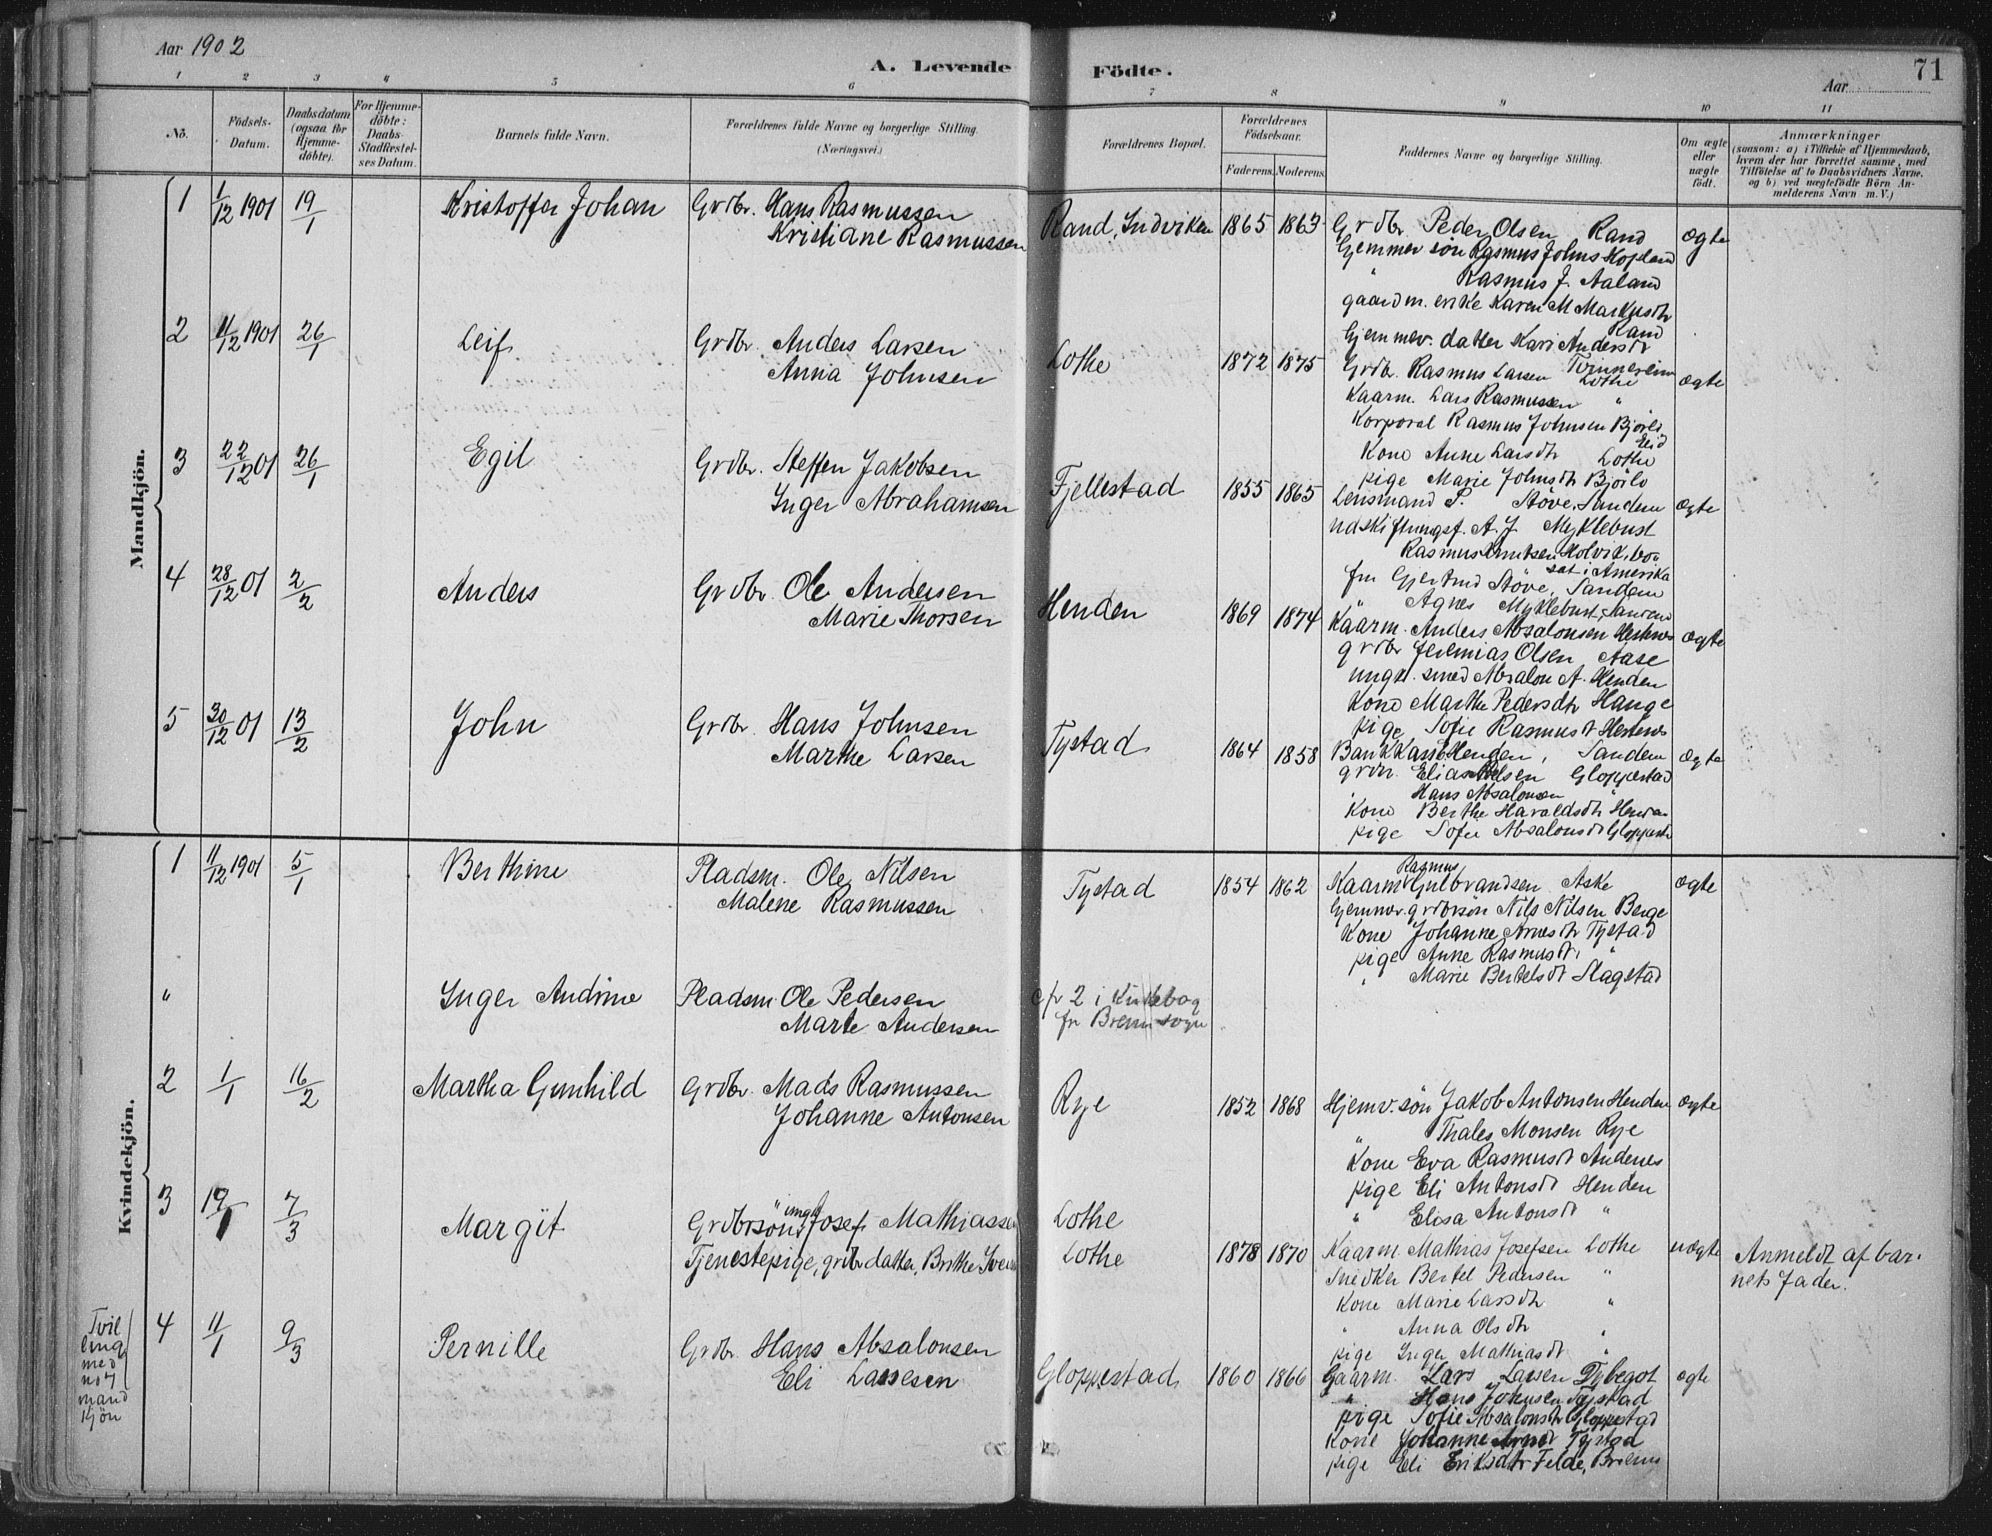 Aar 1902
A. Levende Födte.
71
Aar
1 2 3 4 5 6 7 8 9 10 11
No.
Födsels-Datum.
Daabsdatum (ogsaa for Hjemme-döbte).
For Hjemme-döbte: Daabs-Stadfæstel-ses Datum.
Barnets fulde Navn.
Forældrenes fulde Navne og borgerlige Stilling. (Næringsvei.)
Forældrenes Bopæl.
Forældrenes Födselsaar.
Faderens. Moderens.
Faddernes Navne og borgerlige Stilling.
Om ægte eller uægte födt.
Anmærkninger
(saasom: a) i Tilfælde af Hjemmedaab,
hvem der har forrettet samme, med
Tilföielse af to Daabsvidners Navne,
og b) ved uægtefödte Börn An-
melderens Navn m. V.)
Mandkjön.
1 1/12 1901 19/1 Kristoffer Johan Grdbr. Hans Rasmussen
Kristiane Rasmussen
Rand, Indviken 1865 1863 Grdbr. Peder Olsen Rand ægte
Hjemmev søn Rasmus Johns Hopland
" Rasmus J. Aaland
gaardm. enke Karen M Markusdtr
Rand
Hjemmev. datter Kari Andersdtr
Tonnereim
2 11/12 1901 26/1 Leif Grdbr. Anders Larsen
Anna Johnsen
Lothe 1872 1875 Grdbr. Rasmus Larsen Lothe ægte
Kaarm. Lars Rasmussen "
Korporal Rasmus Johnsen Bjørlo
Eid
Kone Anne Larsdtr Lothe
pige Marie Johnsdtr Bjørlo
3 22/12 01 26/1 Egil Grdbr. Steffen Jakobsen
Inger Abrahamsen
Fjellestad 1855 1865 Lensmand P. Støve, Sandene ægte
Udskiftningsf. A. J. Myklebust
Rasmus Knutsen Holvik, bo-
sat i Amerika
fru Gjertrud Støve, Sandene
" Agnes Myklebust, Sandene
4 28/12 01 2/2 Anders Grdbr. Ole Andersen
Marie Thorsen
Henden 1869 1874 Kaarm. Anders Absalonsen Hestenes ægte
grdbr Jeremias Olsen Aase
ungk. smed Absalon A. Henden
Kone Marthe Pedersdtr Hauge
pige Sofie Rasmusdt Hestenes
5 30/12 01 13/2 John Grdbr. Hans Johnsen
Marthe Larsen
Tystad 1864 1858 Bankkass Henden, Sandene ægte
grdbr. Elias Nilsen Gloppestad
Hans Absalonsen "
Kone Berthe Haraldsdtr Henden
pige Sofie Absalonsdt Gloppestd
Kvindekjön.
1 11/12 1901 5/1 Berthine Pladsm. Ole Nilsen
Malene Rasmussen
Tystad 1854 1862 Kaarm Rasmus Gulbrandsen Aske ægte
Hjemmev. grdbrsøn Nils Nilsen Berge
Kone Johanne Arnesdtr Tystad
pige Anne Rasmusdt. "
" Marie Bertelsdt Slagstad
" Inger Andrine Pladsm Ole Pedersen
Marte Andersen
cfr 2 i Kirkebog
for Breim sogn
2 1/1 16/2 Martha Gunhild Grdbr. Mads Rasmussen
Johanne Antonsen
Rye 1852 1868 Hjemv. søn Jakob Antonsen Henden ægte
" Thales Monsen Rye
Kone Eva Rasmusdt Andenes
pige Eli Antonsdt Henden
" Elisa Antonsdt "
3 19/1 7/3 Margit Grdbrsøn ungk Josef Mathiassen
Tjenestepige, grdbrdatter, Brithe
Lothe
Lothe 1878 1870 Kaarm. Mathias Josefsen Lothe uægte Anmeldt af bar-
nets fader.
Snedker Bertel Pedersen "
Kone Marie Larsdtr "
" Anna Olsdtr "
pige Inger Mathiasdt "
Tvil
ling
med
no 7
mand
kjön
4 11/1 9/3 Pernille Grdbr. Hans Absalonsen
Eli Lassesen
Gloppestad 1860 1866 Gaarm. Lars Larsen Dybegot ægte
" Hans Johnsen Tystad
pige Sofie Absalonsdtr Gloppestad
Kone Johanne Arnesdt Tystad
pige Eli Eriksdtr Felde, Breim